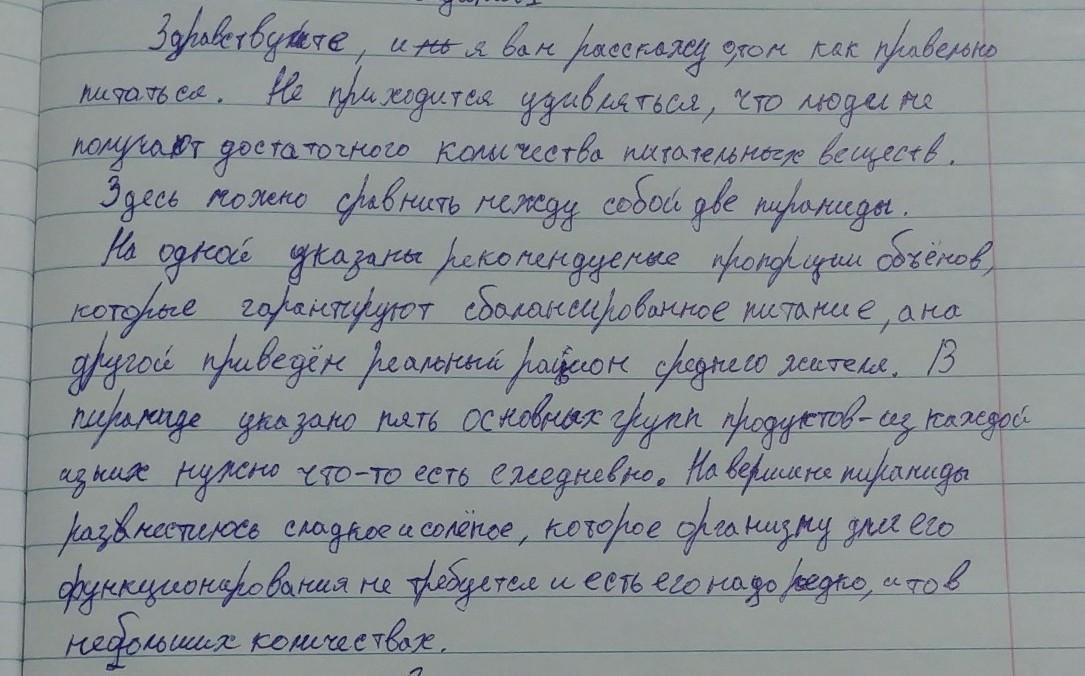 Здравствуйте, и я вам расскажу, о том как правельно
питаться. Не приходится удивляться, что люди не
получают достаточного количества питательных веществ.
Здесь можно сравнить между собой две пирамиды.
На одной указаны рекомендуемые пропорции объёмов,
которые гарантируют сбалансированное питание, а на
другой приведён реальный рацион среднего жителя. В
пирамиде указано пять основных групп продуктов - из каждой
из них нужно что-то есть ежедневно. На вершине пирамиды
разместилось сладкое и солёное, которое организму для его
функционирования не требуется и есть его надо редко, и то в
небольших количествах.